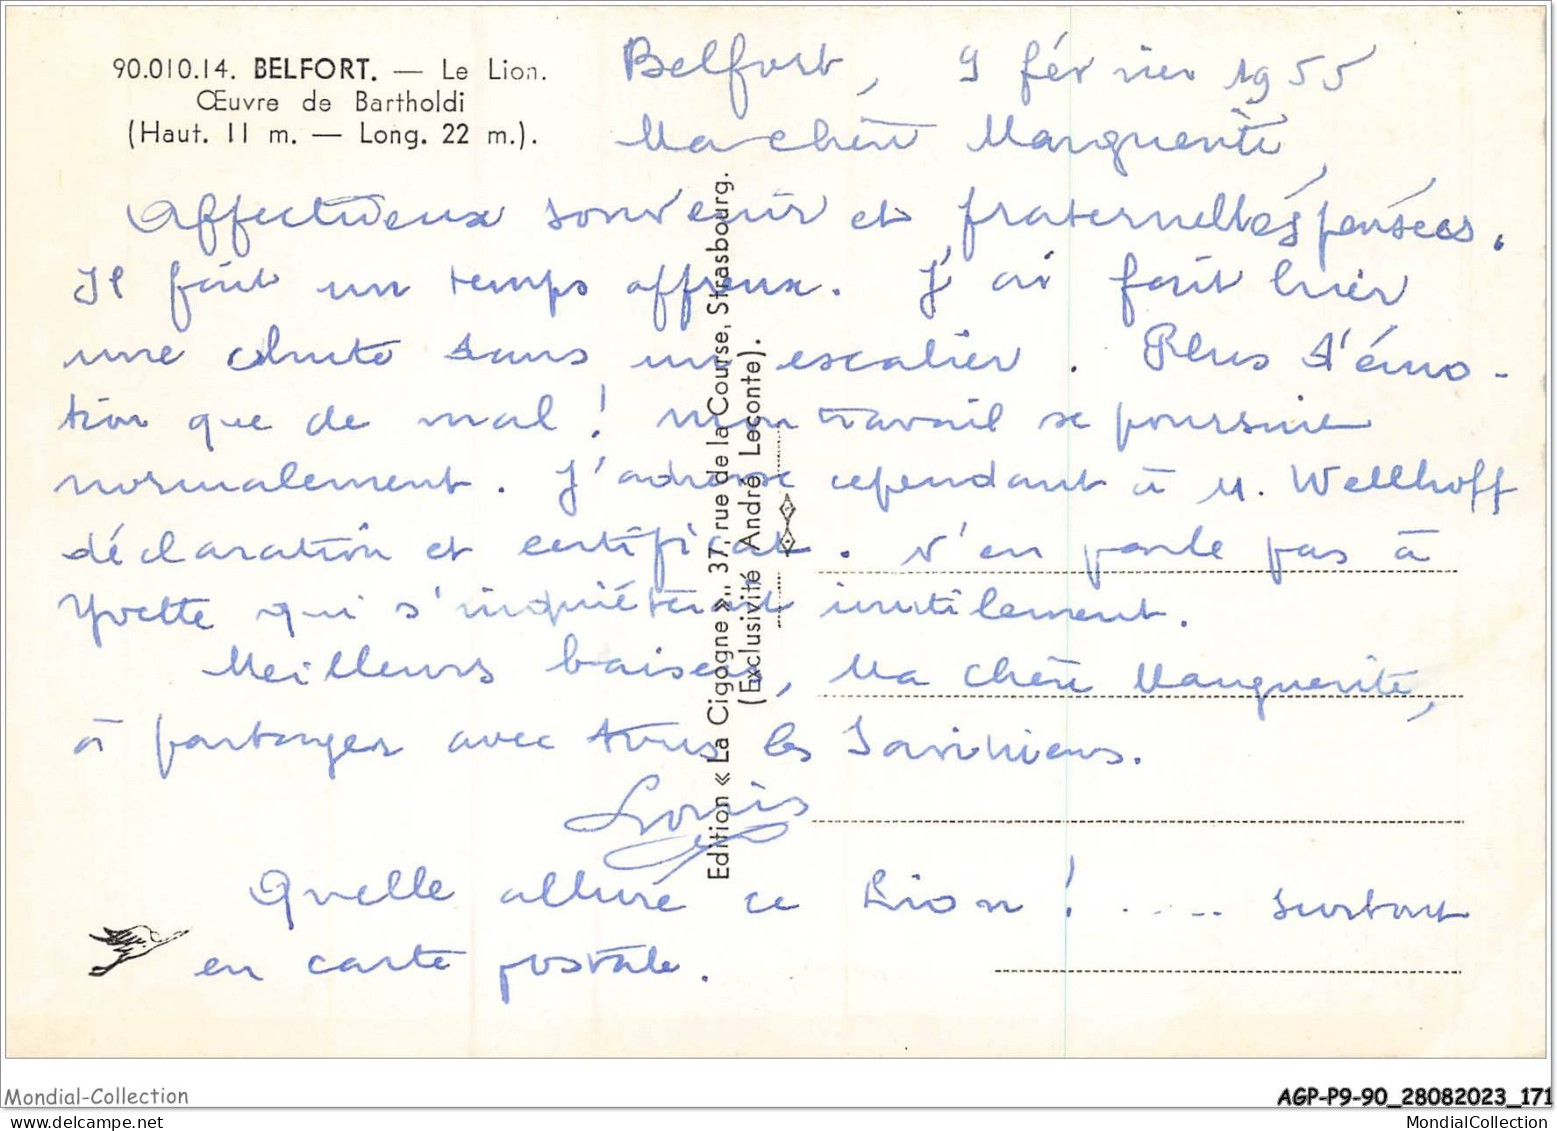 90.010.14. BELFORT. — Le Lion.
Œuvre de Bartholdi
(Haut. 11 m. — Long. 22 m.).
Belfort, 9 février 1955
Ma chère Marguerite,
Affectueux souvenir et fraternelles pensées.
Il fait un temps affreux. J'ai fait hier
une chute dans un escalier. Plus d'émo-
tion que de mal! Mon travail se poursuit
normalement. J'adresse cependant à M. Wellhoff
déclaration et certificat. N'en parle pas à
Yvette qui s'inquiéterait inutilement.
Meilleurs baisers, Ma chère Marguerite,
à partager avec tous les
Louis
Quelle allure ce Lion! ..... surtout
en carte postale.
Edition « La Cigogne », 37, rue de la Course, Strasbourg.
(Exclusivité André Leconte).
Mondial-Collection
AGP-P9-90_28082023_171
www.delcampe.net
MondialCollection